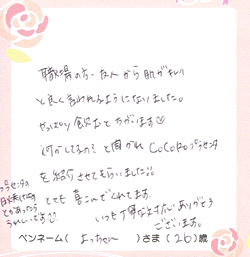 職場の方・友人から肌がキレイ
と良く言われるようになりました。
やっぱり飲むとちがいます
何かしてるの?と聞かれCoCoRoプラセンタ
を紹介させてもらいました!!
とても喜こんでくれてます。
いつも丁寧な対応ありがとう
ございます。
プラセンタの
日焼け止め
とかあったら
うれしいです
ペンネーム( よっちゃん )さま(26)歳